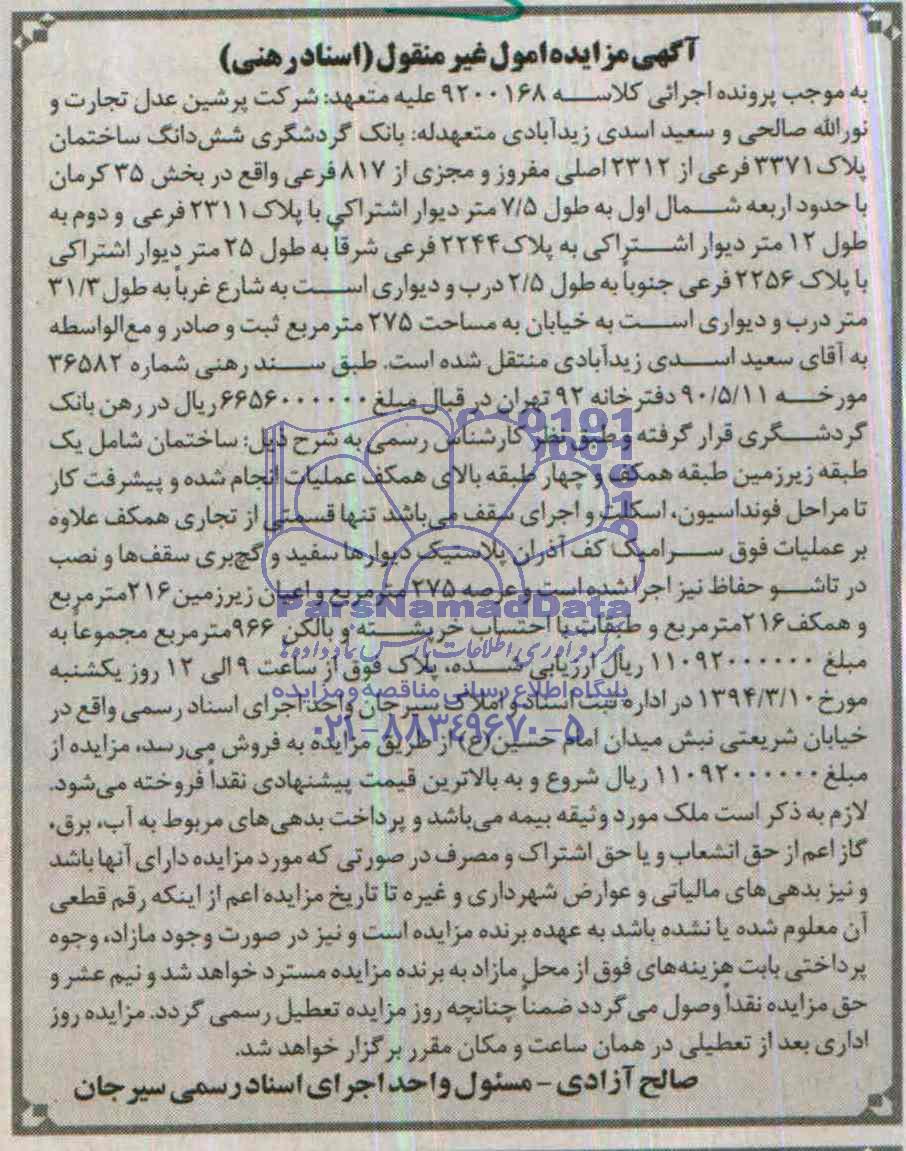 آگهی مزایده اموال غیر منقول (اسناد رهنی)
به موجب پرونده اجرائی کلاسه ۹۲۰۰۱۶۸ علیه متعهد: شرکت پرشین عدل تجارت و
نورالله صالحی و سعید اسدی زیدآبادی متعهدله: بانک گردشگری شش‌دانگ ساختمان
پلاک ۳۳۷۱ فرعی از ۲۳۱۲ اصلی مفروز و مجزی از ۸۱۷ فرعی واقع در بخش ۳۵ کرمان
با حدود اربعه شمال اول به طول ۷/۵ متر دیوار اشتراکی با پلاک ۲۳۱۱ فرعی و دوم به
طول ۱۲ متر دیوار اشتراکی به پلاک ۲۲۴۴ فرعی شرقاً به طول ۲۵ متر دیوار اشتراکی
با پلاک ۲۲۵۶ فرعی جنوباً به طول ۲/۵ درب و دیواری است به شارع غرباً به طول ۳۱/۳
متر درب و دیواری است به خیابان به مساحت ۲۷۵ مترمربع ثبت و صادر و مع‌الواسطه
به آقای سعید اسدی زیدآبادی منتقل شده است. طبق سند رهنی شماره ۳۶۵۸۲
مورخه ۹۰/۵/۱۱ دفترخانه ۹۲ تهران در قبال مبلغ ۶۶۵۶۰۰۰۰۰۰ ریال در رهن بانک
گردشگری قرار گرفته و طبق نظر کارشناس رسمی به شرح ذیل: ساختمان شامل یک
طبقه زیرزمین طبقه همکف و چهار طبقه بالای همکف عملیات انجام شده و پیشرفت کار
تا مراحل فونداسیون، اسکلت و اجرای سقف می‌باشد تنها قسمتی از تجاری همکف علاوه
بر عملیات فوق سرامیک کف آذران پلاستیک دیوارها سفید و گچ‌بری سقف‌ها و نصب
در تاشو حفاظ نیز اجرا شده است و عرصه ۲۷۵ مترمربع و اعیان زیرزمین ۲۱۶ مترمربع
و همکف ۲۱۶ مترمربع و طبقات با احتساب خرپشته و بالکن ۹۶۶ مترمربع مجموعاً به
مبلغ ۱۱۰۹۲۰۰۰۰۰۰ ریال ارزیابی شده، پلاک فوق از ساعت ۹ الی ۱۲ روز یکشنبه
مورخ ۱۳۹۴/۳/۱۰ در اداره ثبت اسناد و املاک سیرجان واحد اجرای اسناد رسمی واقع در
خیابان شریعتی نبش میدان امام حسین(ع) از طریق مزایده به فروش می‌رسد، مزایده از
مبلغ ۱۱۰۹۲۰۰۰۰۰۰ ریال شروع و به بالاترین قیمت پیشنهادی نقداً فروخته می‌شود.
لازم به ذکر است ملک مورد وثیقه بیمه می‌باشد و پرداخت بدهی‌های مربوط به آب، برق،
گاز اعم از حق انشعاب و یا حق اشتراک و مصرف در صورتی که مورد مزایده دارای آنها باشد
و نیز بدهی های مالیاتی و عوارض شهرداری و غیره تا تاریخ مزایده اعم از اینکه رقم قطعی
آن معلوم شده یا نشده باشد به عهده برنده مزایده است و نیز در صورت وجود مازاد، وجوه
پرداختی بابت هزینه‌های فوق از محل مازاد به برنده مزایده مسترد خواهد شد و نیم عشر و
حق مزایده نقداً وصول می گردد ضمناً چنانچه روز مزایده تعطیل رسمی گردد. مزایده روز
اداری بعد از تعطیلی در همان ساعت و مکان مقرر برگزار خواهد شد.
صالح آزادی - مسئول واحد اجرای اسناد رسمی سیرجان
ParsNamadData
مرکز فرآوری اطلاعات پارس نماد داده‌ها
پایگاه اطلاع رسانی مناقصه و مزایده
۰۲۱-۸۸۳۴۹۶۷۰-۵